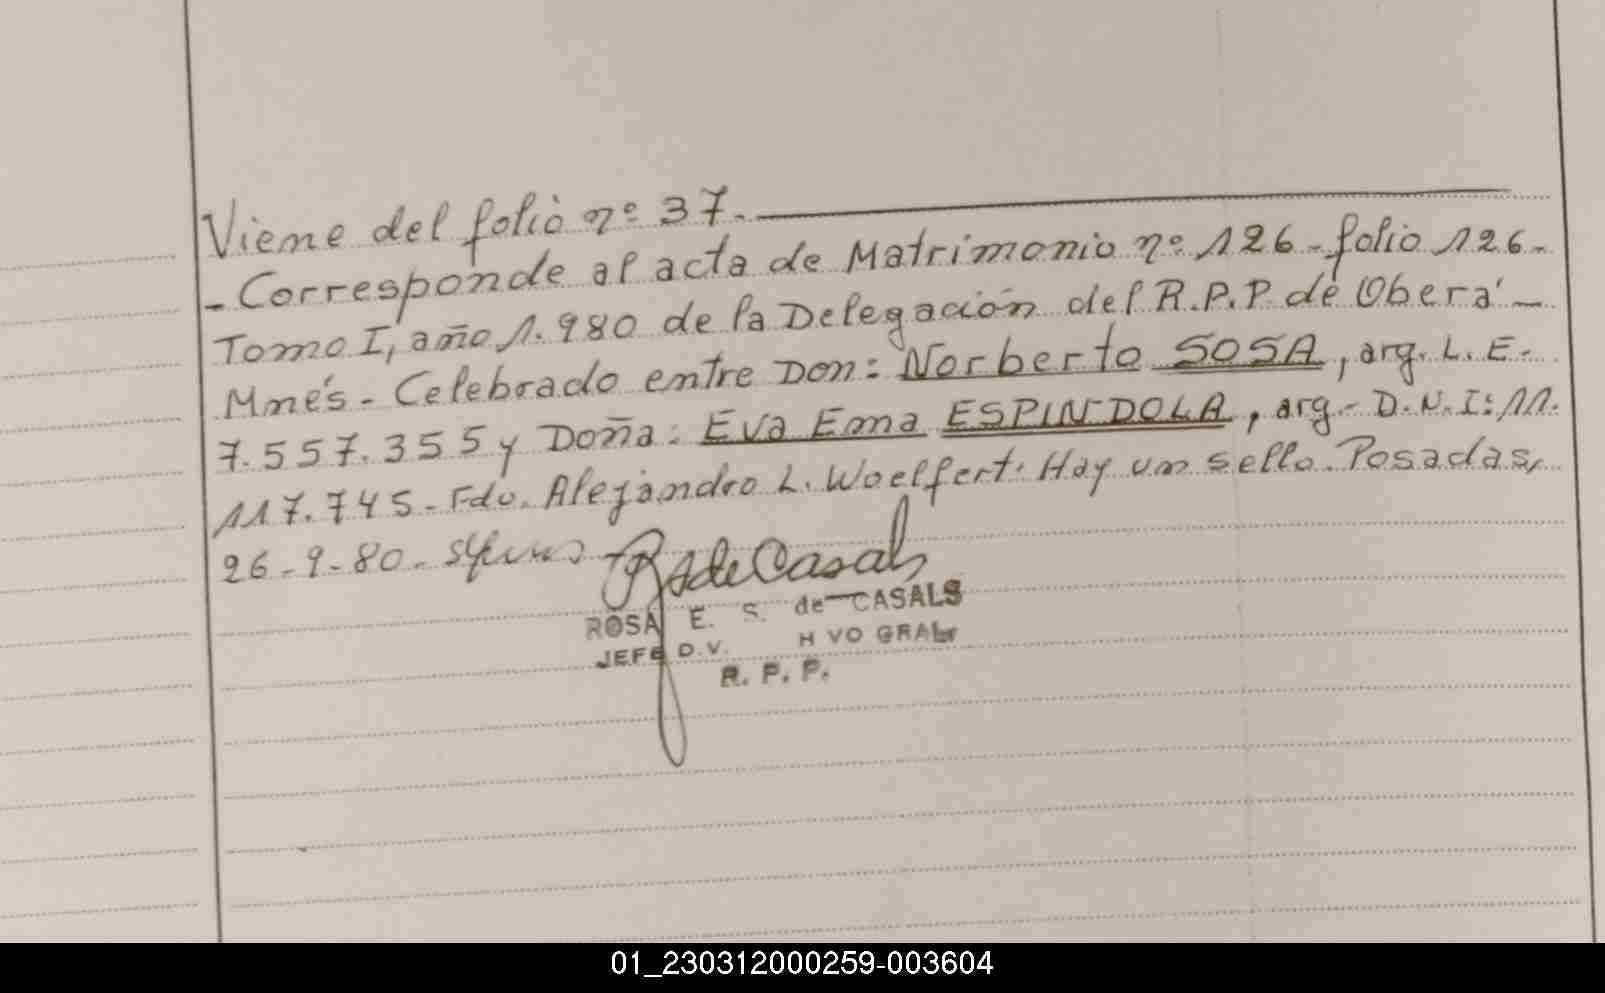 Viene del folio nº 37.
- Corresponde al acta de Matrimonio nº 126 - folio 126 -
Tomo I, año 1.980 de la Delegación del R.P.P de Oberá -
Mnes - Celebrado entre Don: Norberto SOSA, arg. L.E.
7.557.355 y Doña: Eva Ema ESPINDOLA, arg - D.N.I: 11.
117.745 - Fdo. Alejandro L. Woelfert. Hay un sello. Posadas,
26 - 9 - 80 -
R S de Casals
ROSA E. S. de CASALS
JEFE D.V. H VO GRAL
R. P. P.
01_230312000259-003604